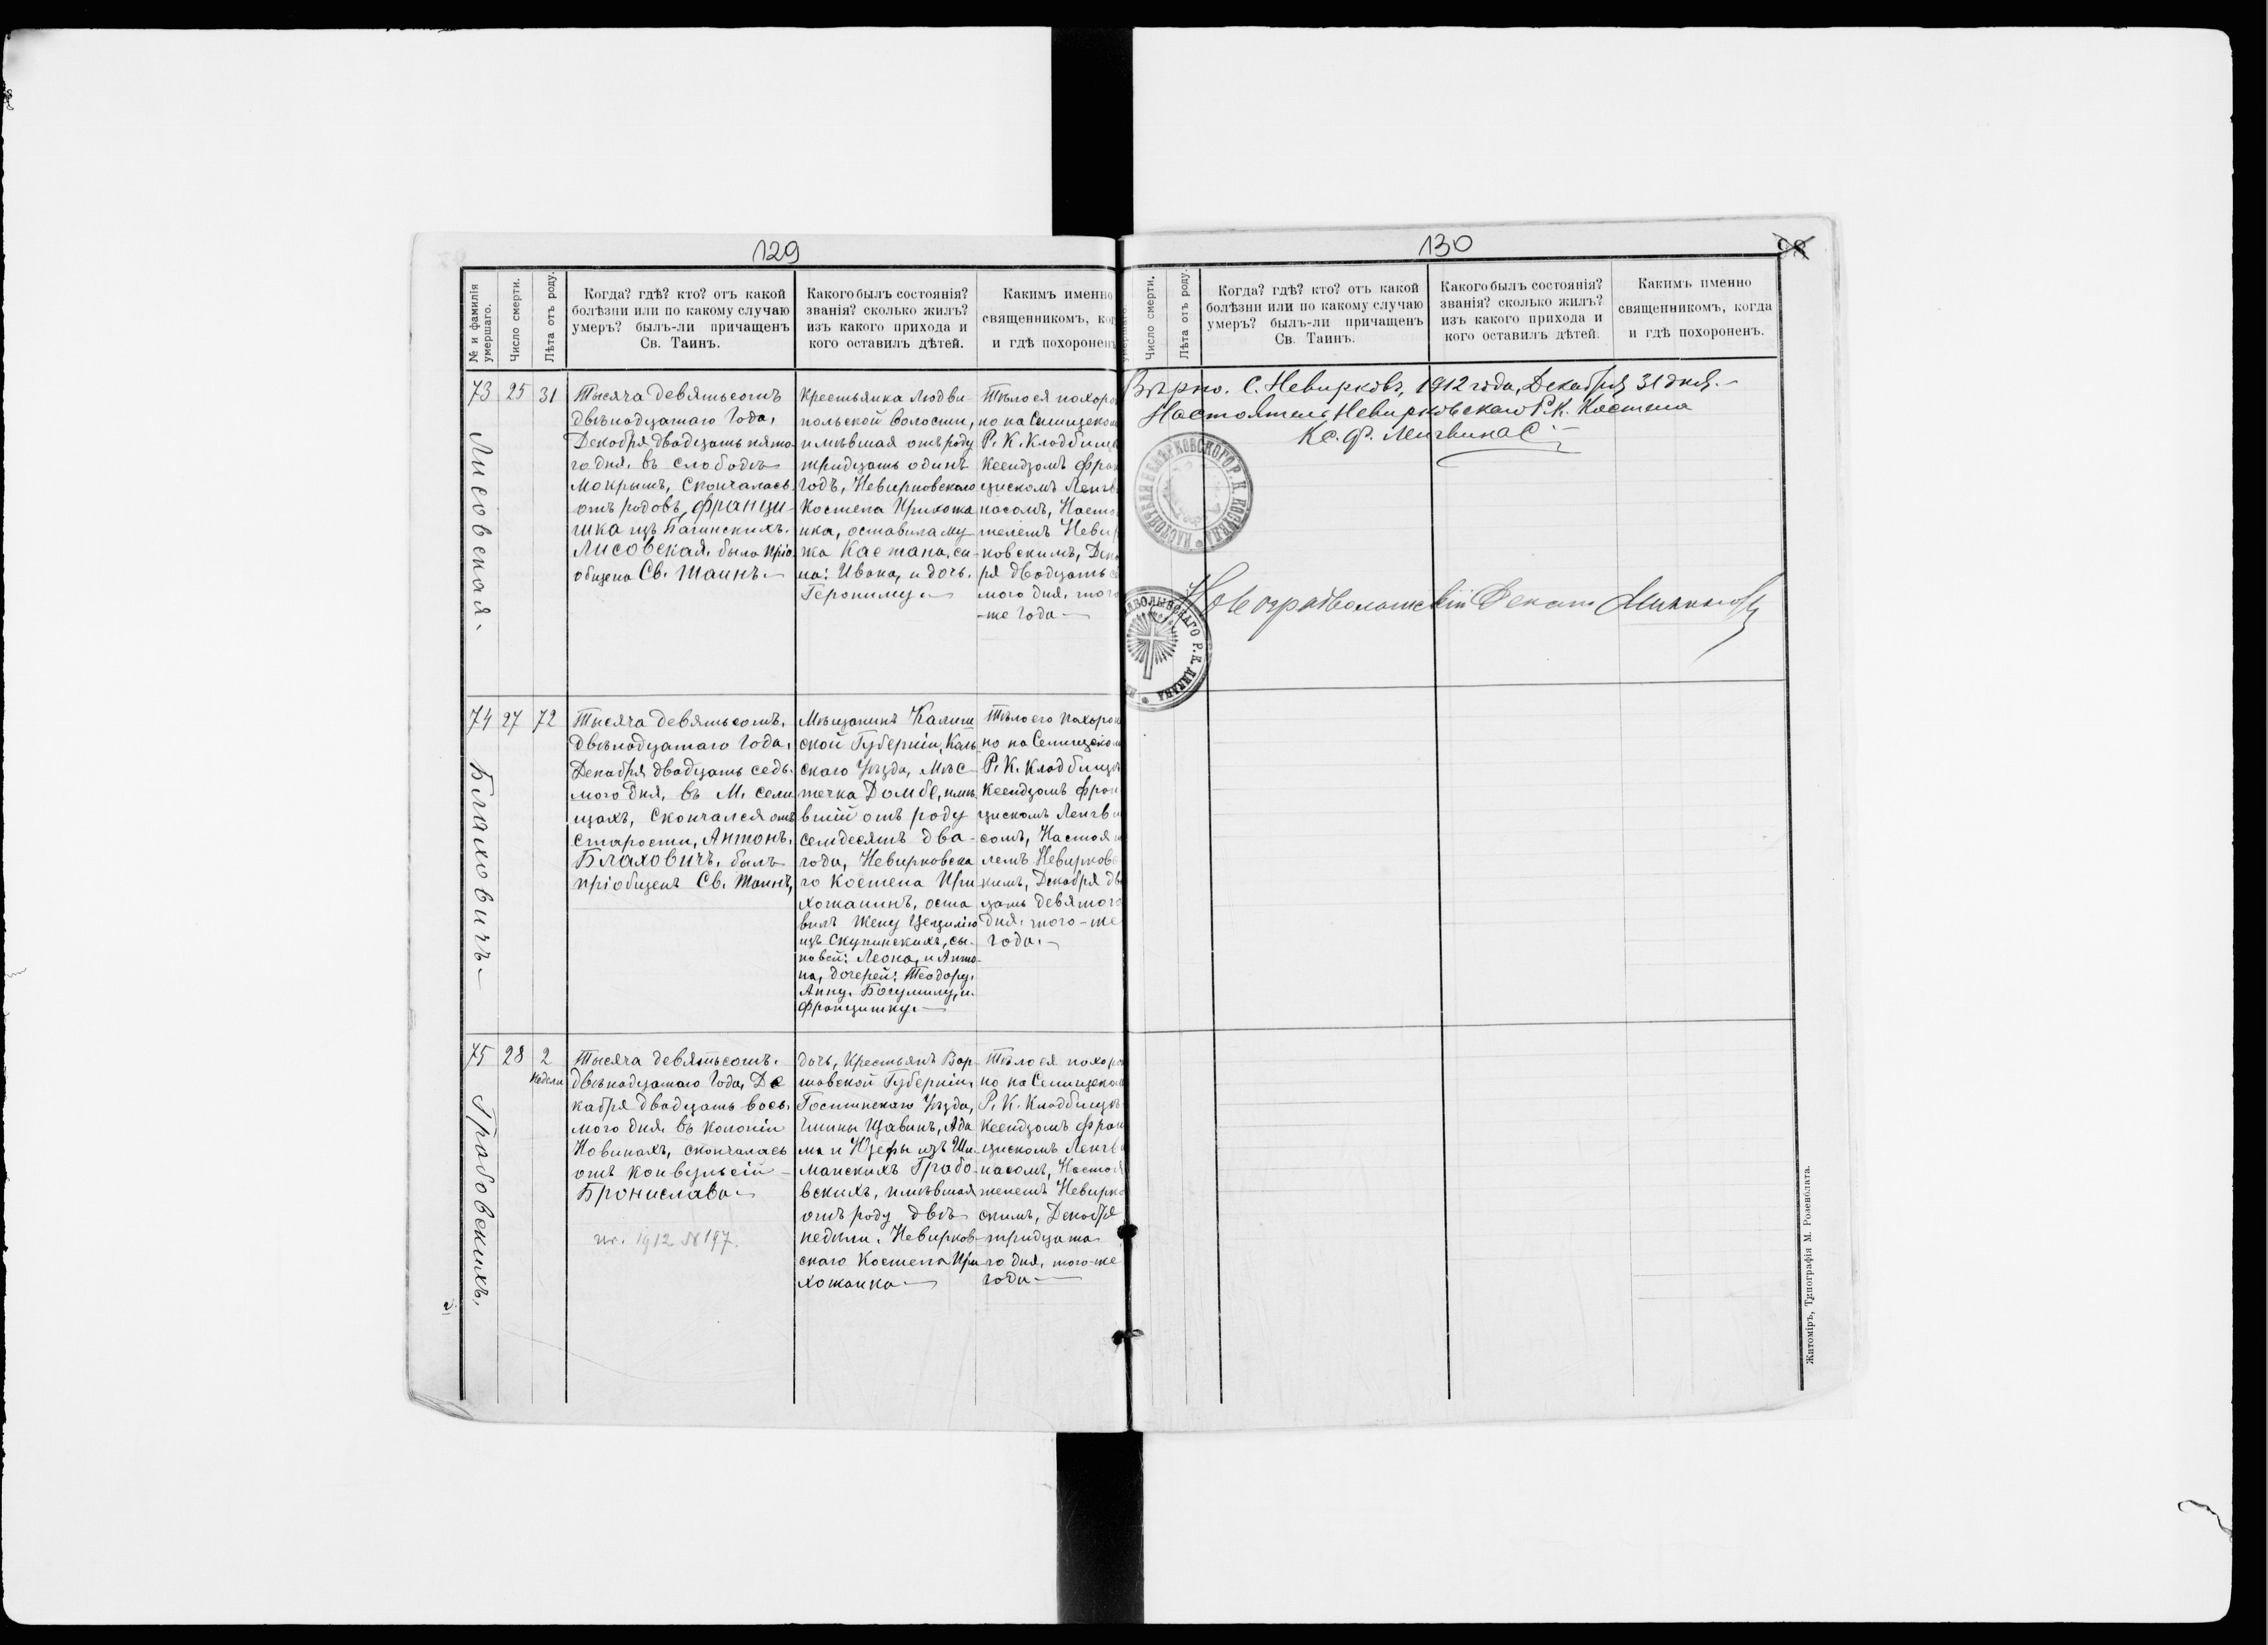 129
№ и фамилія умершаго.
Число смерти.
Лѣта отъ роду.
Когда? гдѣ? кто? отъ какой
болѣзни или по какому случаю
умеръ? былъ-ли причащенъ
Св. Таинъ.
Какого былъ состоянія?
званія? сколько жилъ?
изъ какого прихода и
кого оставилъ дѣтей.
Какимъ именно
священникомъ, ког
и гдѣ похороненъ
73
Лисовская.
25
31
Тысяча девятьсотъ
двѣнадцатаго Года,
Декабря двадцать пято-
го дня, въ слободѣ
Мокрымъ, скончалась
отъ родовъ, Францы-
шка изъ Багинскихъ.
Лисовская, была пріо-
общена Св. Таинъ.
Крестьянка Людви-
польской волости,
имѣвшая отъ роду
тридцать одинъ
Годъ, Невирковскаго
Костела Прихожа
нка, оставила му-
жа Каетана, сы-
на: Ивана, и дочь.
Геронимуㅡ
Тѣло ея похоро
но на Селищеком
Р. К. Кладбищѣ
Ксендзомъ Фран
цискомъ Ленгв
насомъ, Насто
телемъ Невир
ковскимъ, Дека
ря двадцать се
мого дня, того
-же Года
74
Блаховичъ
27
72
Тысяча девятьсотъ.
двѣнадцатаго Года,
Декабря двадцать седь-
мого дня, въ М. Сели
щахъ, Скончался отъ
Старости, Антонъ.
Блаховичъ. былъ
пріобщенъ Св. Таинъ,
Мѣщанинъ Калиш
ской Губерніи, Коль
скаго Уѣзда, Мѣс-
течка Домбе, имѣ
вшій отъ роду
Семдесятъ два
года, Невирковска
го Костела При
хожанинъ, оста
вилъ Жену Цецилію
изъ Скупинскихъ, сы-
новей: Леона, и Анто-
на, дочерей: Теодору,
Анну, Богумилу, и
Францишку.
Тѣло его похорон
но на Селищеком
Р. К. Кладбищѣ
Ксендзомъ Фран
цискомъ Ленгви
сомъ, Настоя
лемъ Невирков
кимъ, Декабря дв
цать девятого
дня, того-же
Года.
75
Грабовскихъ,
28
2
недели
Тысяча девятьсотъ.
двѣнадцатаго Года, Де
кабря двадцать вось-
мого дня, въ Колоніи
Новинахъ, скончалась
отъ Конвульсій
Бронислава
nr. 1912 № 197.
дочь, Крестьянъ Вар-
шавской Губерніи,
Гостинскаго Уѣзда,
Гмины Щавинъ, Ада
ма и Юзефы изъ Ши-
манскихъ Грабо-
вскихъ, имѣвшая
отъ роду двѣ
недѣли. Невирков-
скаго Костела При
хожанка
Тѣло ея похоро
но на Селищеком
Р. К. Кладбищѣ
Ксендзомъ Фран
цискомъ Ленгв
насомъ, Настоя
телемъ Невирко
скимъ, Декабря
тридцата
го дня, того-же
года
130
умершаго.
Число смерти.
Лѣта отъ роду.
Когда? гдѣ? кто? отъ какой
болѣзни или по какому случаю
умеръ? былъ-ли причащенъ
Св. Таинъ.
Какого былъ состоянія?
званія? сколько жилъ?
изъ какого прихода и
кого оставилъ дѣтей.
Какимъ именно
священникомъ, когда
и гдѣ похороненъ.
Вѣрно. С. Невирковъ, 1912 года, Декабря 31 дня.
Настоятель Невирковскаго Р. К. Костела
Кс. Ф. Ленгвинас
Новоградволынскій Декан
Житоміръ, Типографія М. Розенблата.